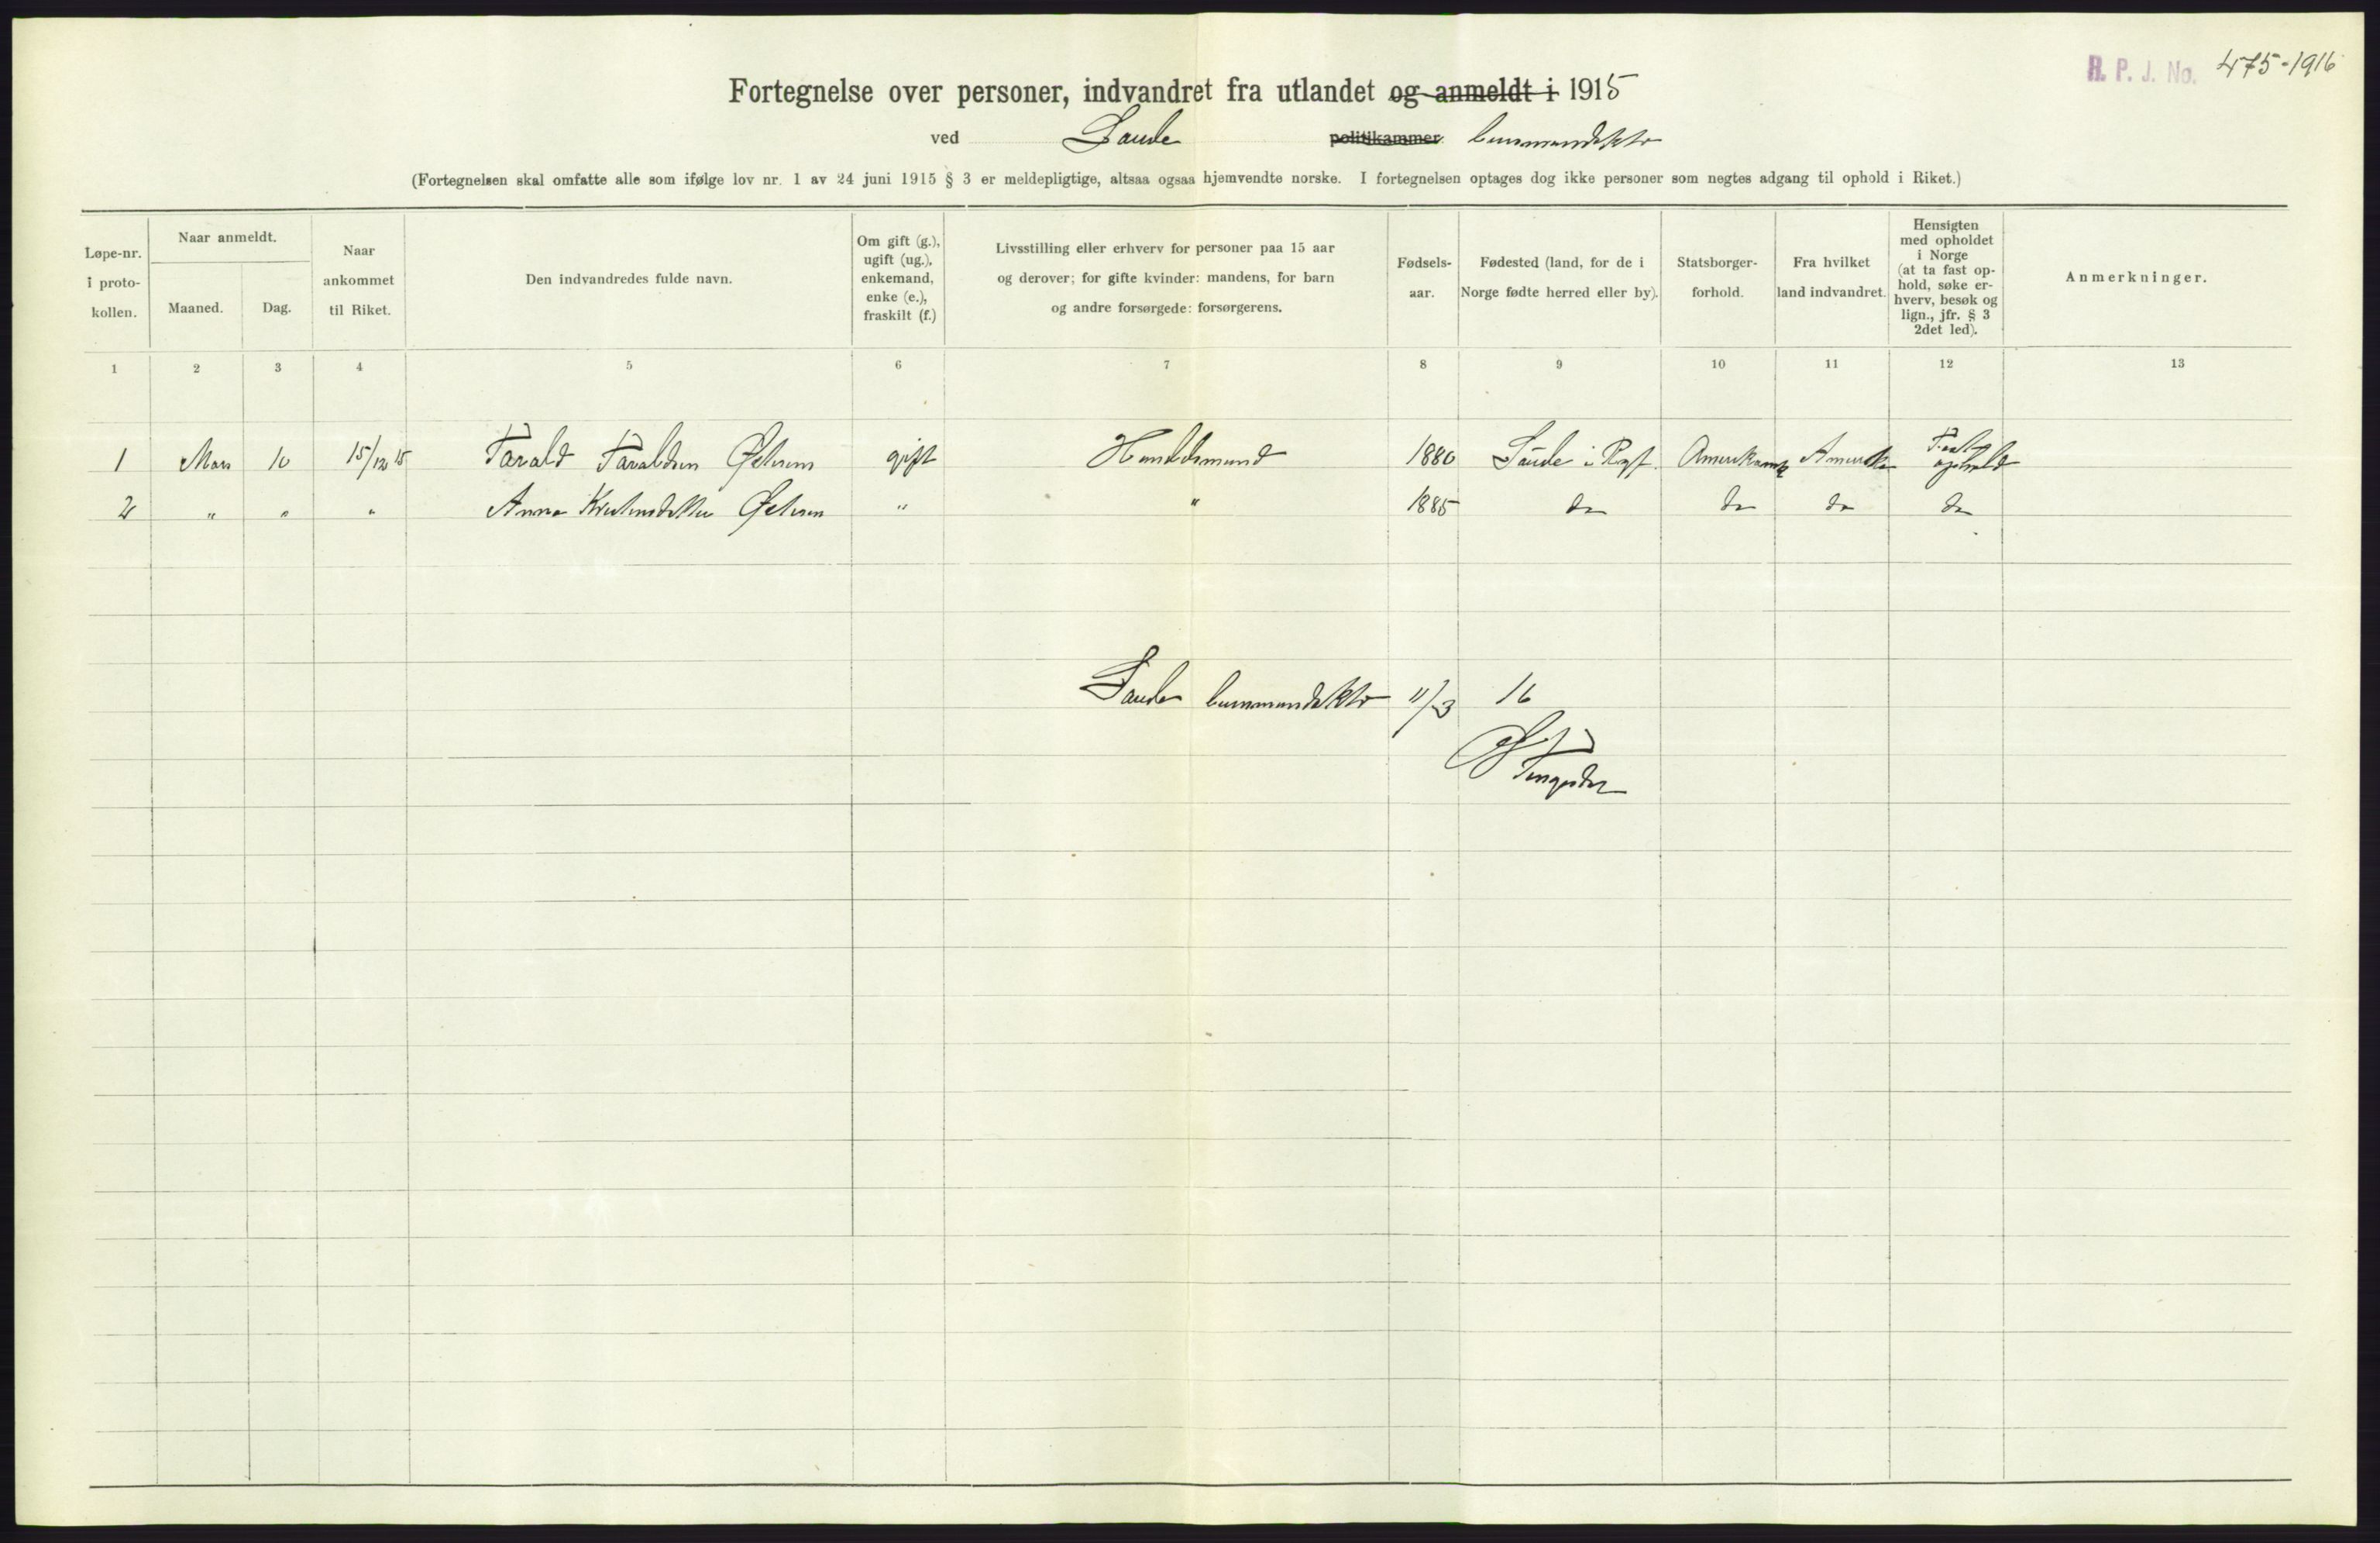 R. P. J. No. 475-1916
Fortegnelse over personer, indvandret fra utlandet og anmeldt i 1915
ved Saude politikammer lensmandsktr
(Fortegnelsen skal omfatte alle som ifølge lov nr. 1 av 24 juni 1915 § 3 er meldepligtige, altsaa ogsaa hjemvendte norske. I fortegnelsen optages dog ikke personer som negtes adgang til ophold i Riket.)
Løpe-nr.
i proto-
kollen.
Naar anmeldt.
Maaned.
Dag.
Naar
ankommet
til Riket.
Den indvandredes fulde navn.
Om gift (g.),
ugift (ug.),
enkemand,
enke (e.),
fraskilt (f.)
Livsstilling eller erhverv for personer paa 15 aar
og derover; for gifte kvinder: mandens, for barn
og andre forsørgede: forsørgerens.
Fødsels-
aar.
Fødested (land, for de i
Norge fødte herred eller by).
Statsborger-
forhold.
Fra hvilket
land indvandret.
Hensigten
med opholdet
i Norge
(at ta fast op-
hold, søke er-
hverv, besøk og
lign., jfr. § 3
2det led).
Anmerkninger.
1 2 3 4 5 6 7 8 9 10 11 12 13
1 Mars 10 15/12 15 Tarald Taraldsen gift 1880 Saude i Ryf. Amerikansk Amerika Fast ophold
2 " " " Anna " " 1885 do do do do
Saude lensmandsktr 11/3 16